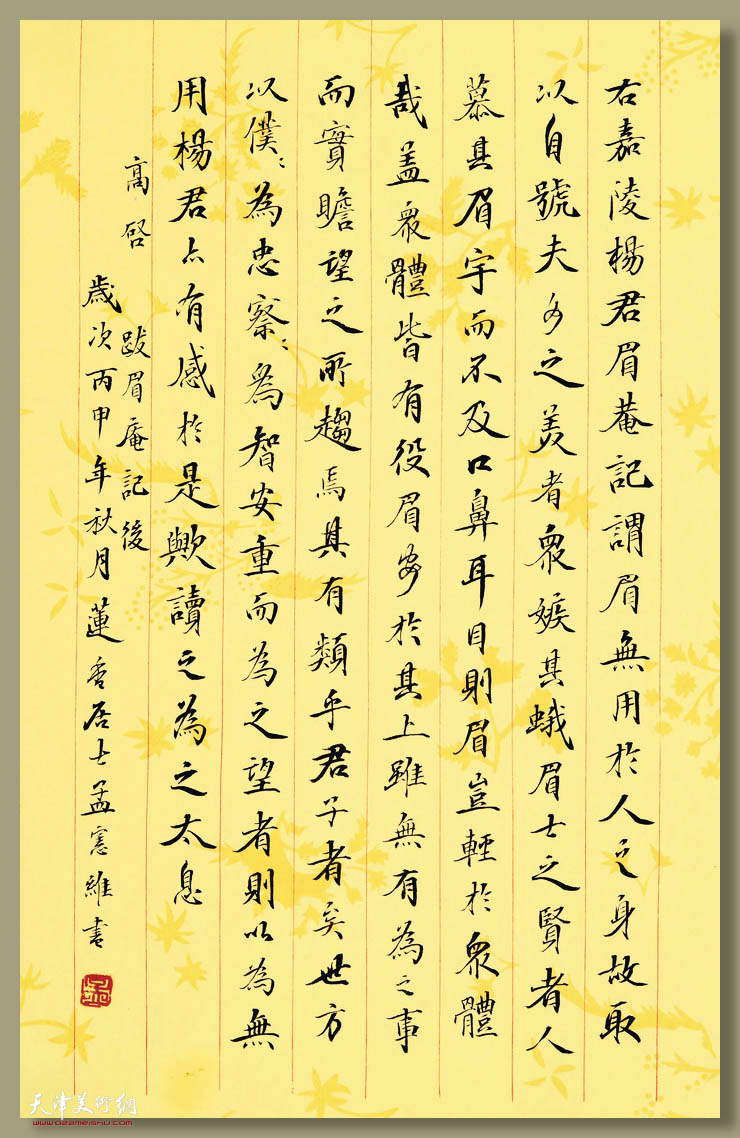 右嘉陵楊君眉菴記謂眉無用於人之身故取
以自號夫女之美者衆嫉其蛾眉士之賢者人
慕其眉宇而不及口鼻耳目則眉豈輕於衆體
哉盖衆體皆有役眉安於其上雖無有為之事
而實瞻望之所趨焉其有類乎君子者矣世方
以僕〻為忠察〻為智安重而為之望者則以為無
用楊君亦有感於是歟讀之為之太息
高啓
跋眉庵記後
歲次丙申年秋月蓮香居士孟憲維書
天津美術網
www.022meishu.com